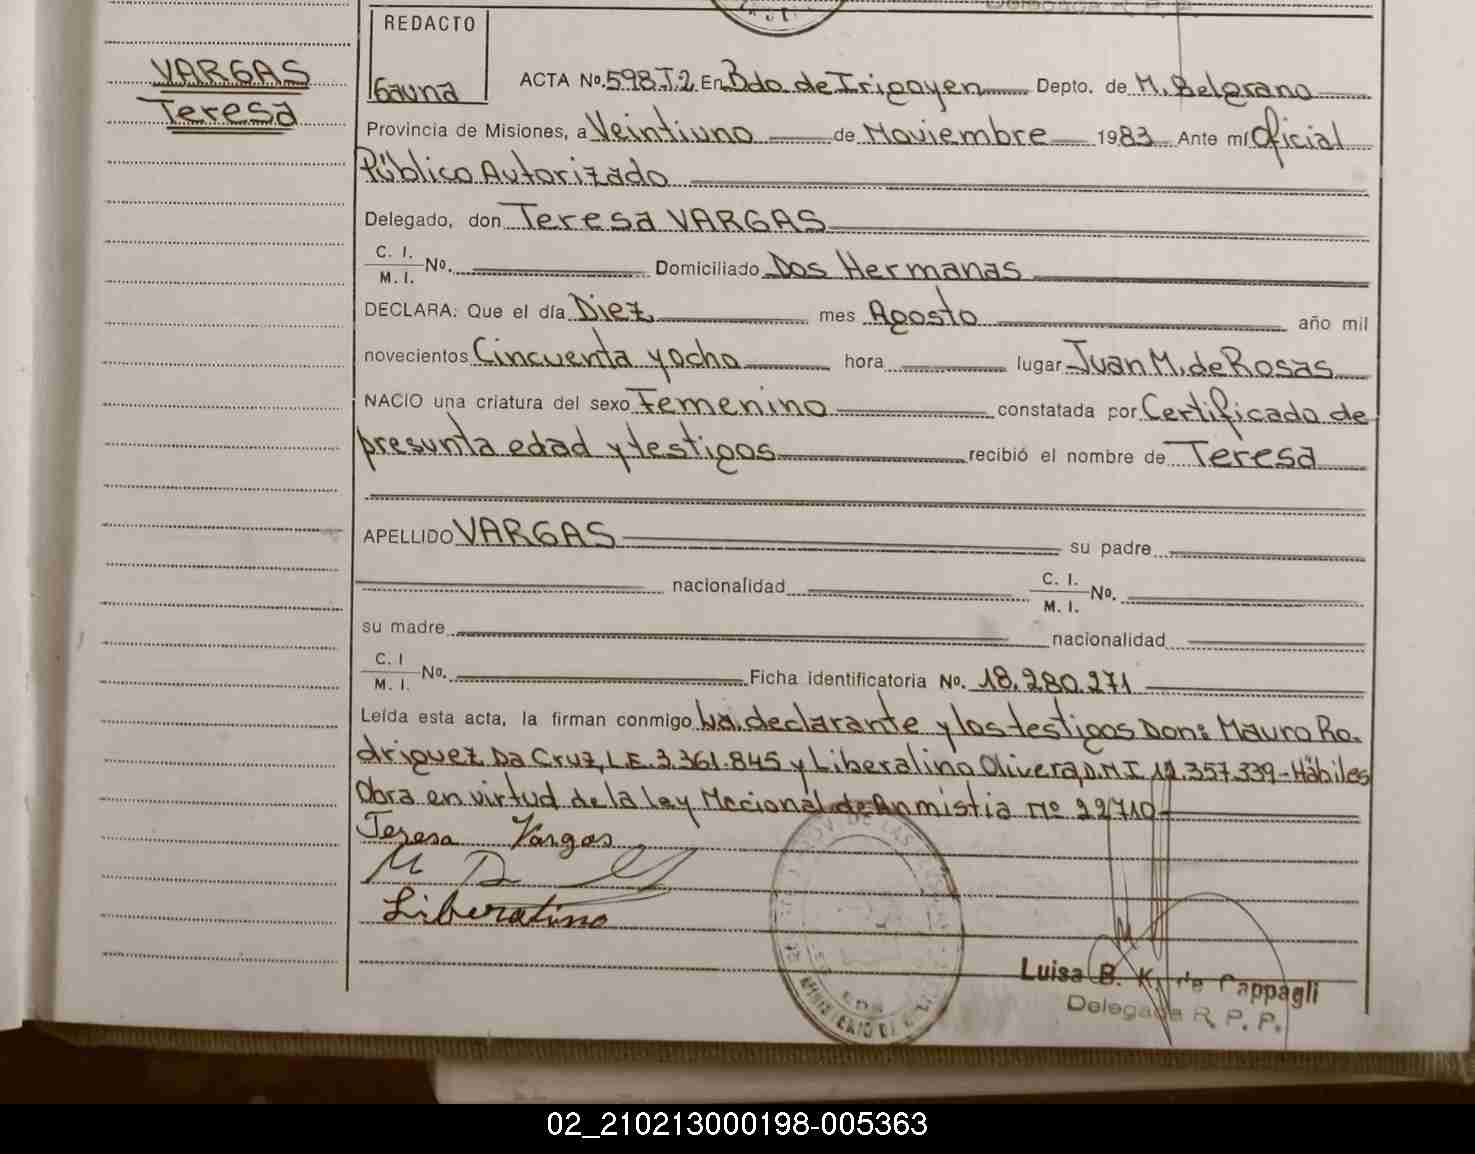 Delegada R. P. P.
REDACTO
VARGAS
Teresa
Gauna
ACTA No. 598 T2 En Bdo de Irigoyen Depto. de M. Belgrano
Provincia de Misiones, a Veintiuno de Noviembre 1983 Ante mí Oficial
Público Autorizado
Delegado, don Teresa VARGAS
C. I.
M. I. No. Domiciliado Dos Hermanas
DECLARA: Que el día Diez mes Agosto año mil
novecientos Cincuenta y ocho hora lugar Juan M. de Rosas
NACIO una criatura del sexo Femenino constatada por Certificado de
presunta edad y testigos recibió el nombre de Teresa
APELLIDO VARGAS su padre
nacionalidad C. I.
M. I. No.
su madre nacionalidad
C. I
M. I. No. Ficha identificatoria No. 18.280.271
Leída esta acta, la firman conmigo La declarante y los testigos Don: Mauro Ro-
driguez Da Cruz, L.E. 3.361.845 y Liberalino Olivera, D.N.I 12.357.339 - Hábiles
Obra en virtud de la ley Nacional de Anmistia Nº 22710
Teresa Vargas
Liberalino
Luisa B. K. de Cappagli
Delegada R. P. P.
02_210213000198-005363